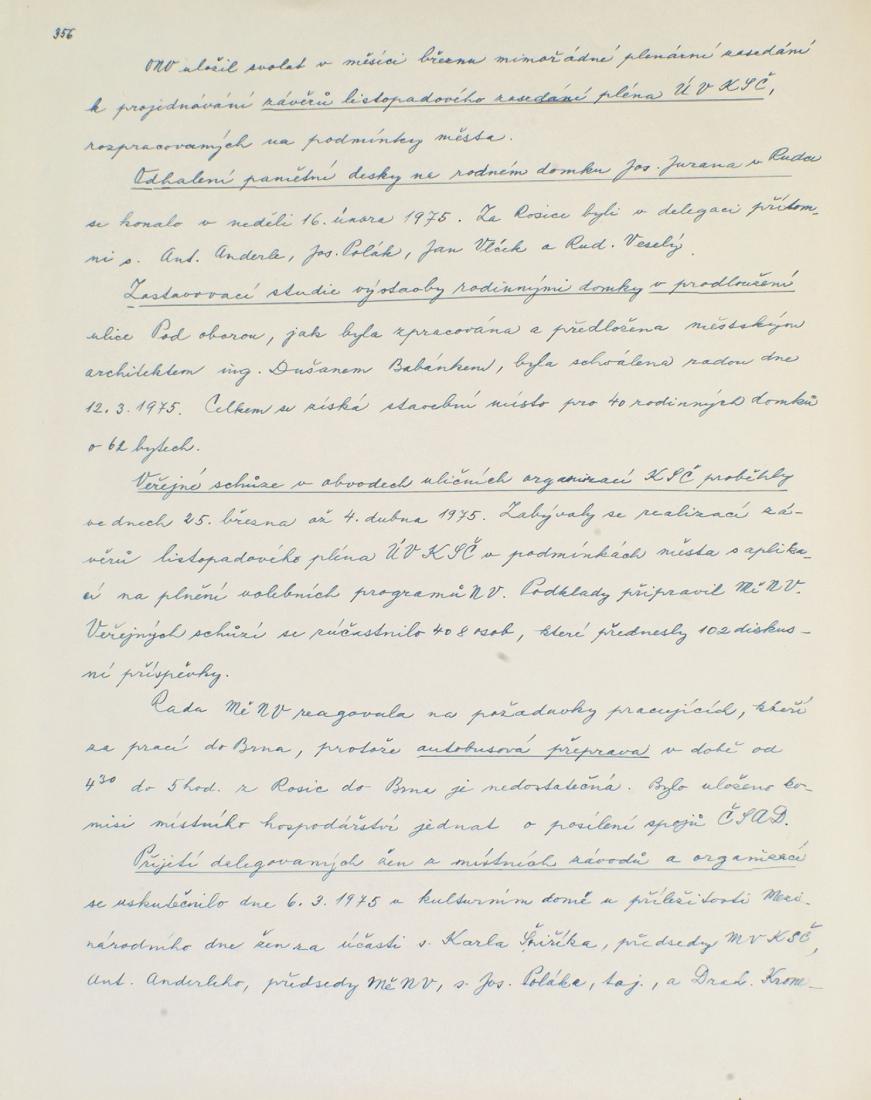 356
ONV uložil svolat v měsíci březnu mimořádné plenární zasedání
k projednávání závěrů listopadového zasedání pléna ÚV KSČ,
rozpracovaných na podmínky města.
Odhalení pamětní desky na rodném domku Jos. Jurana v Rudce
se konalo v neděli 16. února 1975. Za Rosice byli v delegaci přítom-
ni s. Ant. Anderle, Jos. Polák, Jan Vlček a Rud. Veselý.
Zastavovací studie výstavby rodinnými domky v prodloužení
ulice Pod oborou, jak byla zpracována a předložena městským
architektem ing. Dušanem Babánkem, byla schválena radou dne
12. 3. 1975. Celkem se získá stavební místo pro 40 rodinných domků
o 62 bytech.
Veřejné schůze v obvodech uličních organizací KSČ proběhly
ve dnech 25. března až 4. dubna 1975. Zabývaly se realizací zá-
věrů listopadového pléna ÚV KSČ v podmínkách města s aplika-
cí na plnění volebních programů NV. Podklady připravil MěNV.
Veřejných schůzí se zúčastnilo 408 osob, které přednesly 102 diskus-
ní příspěvky.
Rada MěNV reagovala na požadavky pracujících, kteří
za prací do Brna, protože autobusová přeprava v době od
4³⁰ do 5 hod. z Rosic do Brna je nedostatečná. Bylo uloženo ko-
misi místního hospodářství jednat o posílení spojů ČSAD.
Přijetí delegovaných žen z místních závodů a organizací
se uskutečnilo dne 6. 3. 1975 v kulturním domě u příležitosti Mezi-
národního dne žen za účasti s. Karla Šiříka, předsedy MV KSČ,
Ant. Anderleho, předsedy MěNV, s. Jos. Poláka, taj., a Drah. Krom-